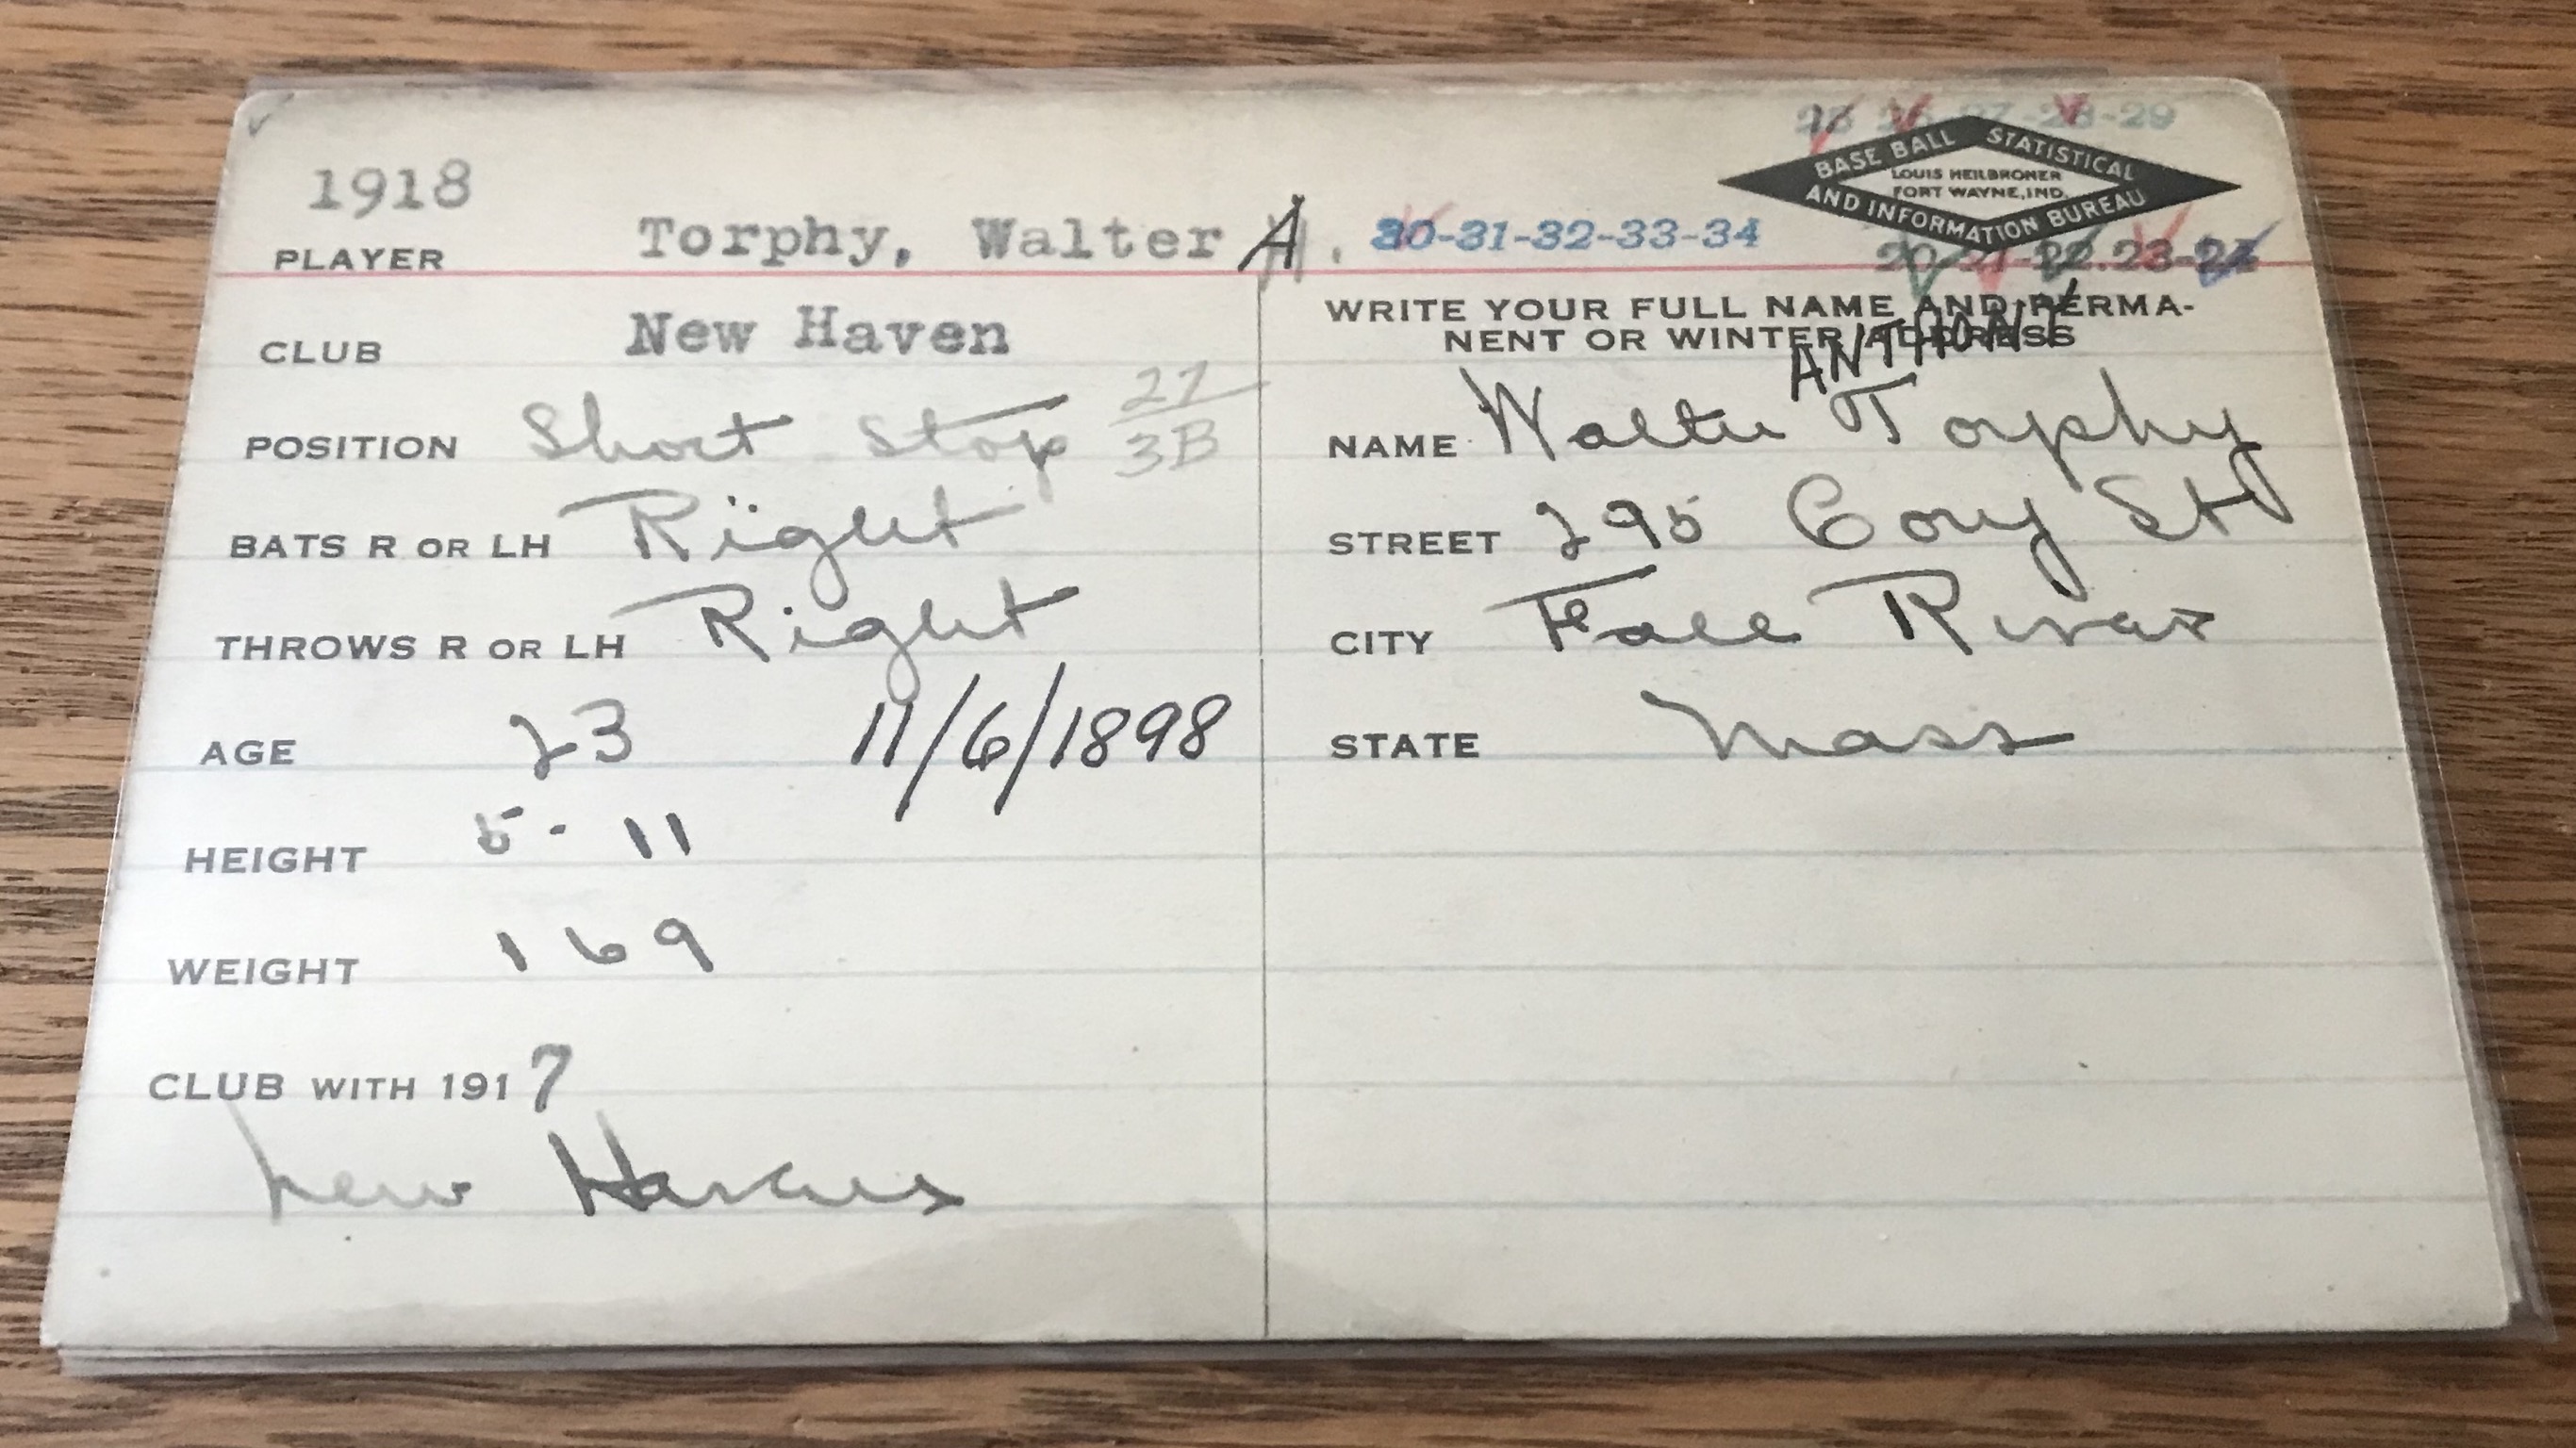 -28-29
BASE BALL STATISTICAL
LOUIS HEILBRONER
FORT WAYNE, IND.
AND INFORMATION BUREAU
1918
PLAYER Torphy, Walter A. 30-31-32-33-34
20-21-22.23-24
CLUB New Haven
WRITE YOUR FULL NAME AND PERMA-
NENT OR WINTER ADDRESS
ANTHONY
POSITION Short Stop 27
3B
NAME Walter Torphy
BATS R OR LH Right
STREET 295 Cory St
THROWS R OR LH Right
CITY Fall River
AGE 23 11/6/1898
STATE Mass
HEIGHT 5-11
WEIGHT 169
CLUB WITH 1917
New Haven